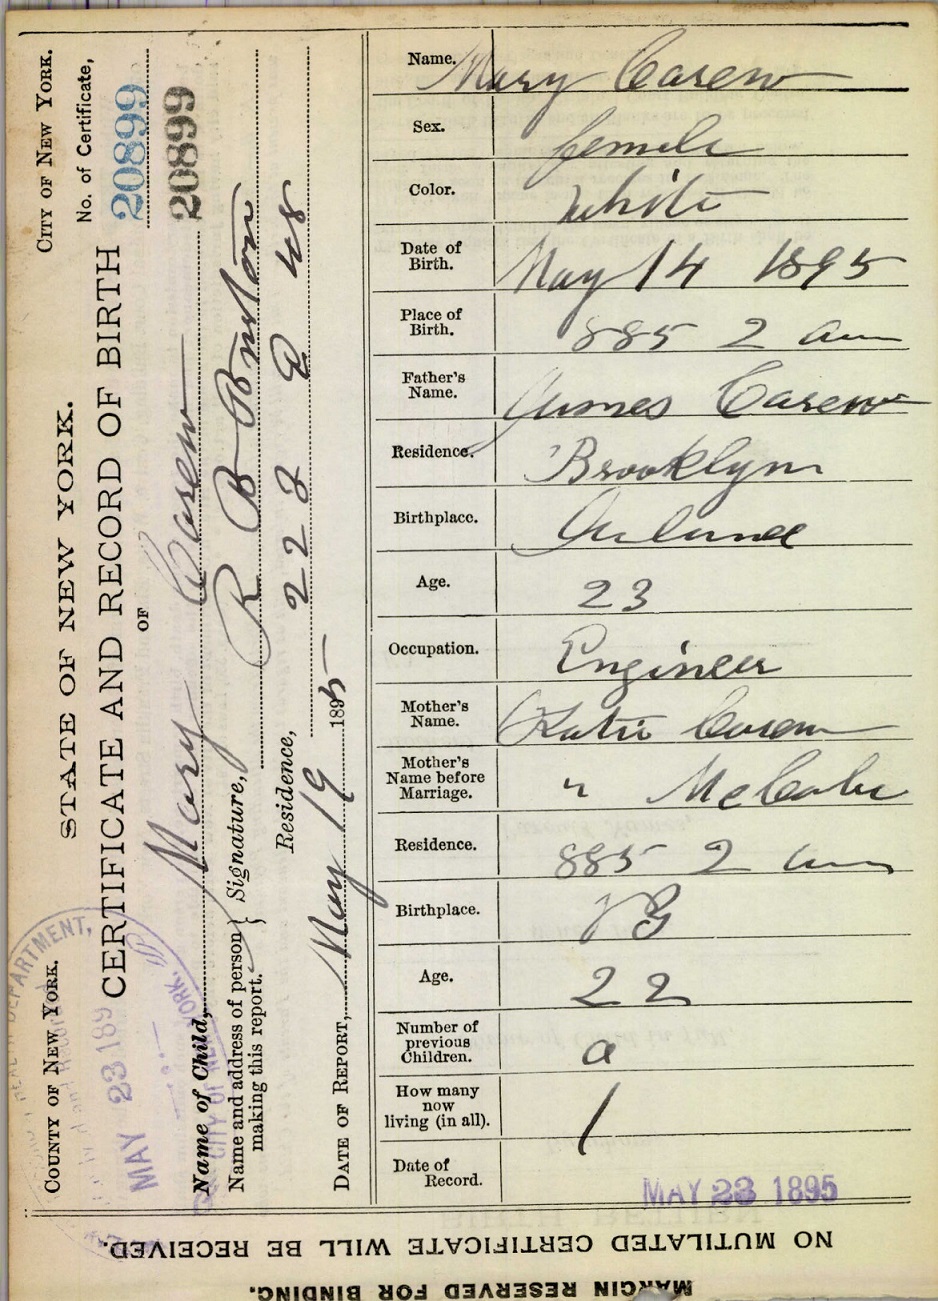 STATE OF NEW YORK.
COUNTY OF NEW YORK. CITY OF NEW YORK.
CERTIFICATE AND RECORD OF BIRTH
No. of Certificate,
20899
OF
Name of Child, Mary Carew 20899
Name and address of person making this report. } Signature, R B
Residence, 223 E 48
DATE OF REPORT, May 19 1895
DEPARTMENT,
MAY 23 189
CITY OF NEW YORK.
Name. Mary Carew
Sex. female
Color. White
Date of Birth. May 14 1895
Place of Birth. 885 2 ave
Father's Name. James Carew
Residence. Brooklyn
Birthplace. Ireland
Age. 23
Occupation. Engineer
Mother's Name. Katie Carew
Mother's Name before Marriage. " McCabe
Residence. 885 2 ave
Birthplace.
Age. 22
Number of previous Children. 0
How many now living (in all). 1
Date of Record. MAY 23 1895
NO MUTILATED CERTIFICATE WILL BE RECEIVED.
MARGIN RESERVED FOR BINDING.